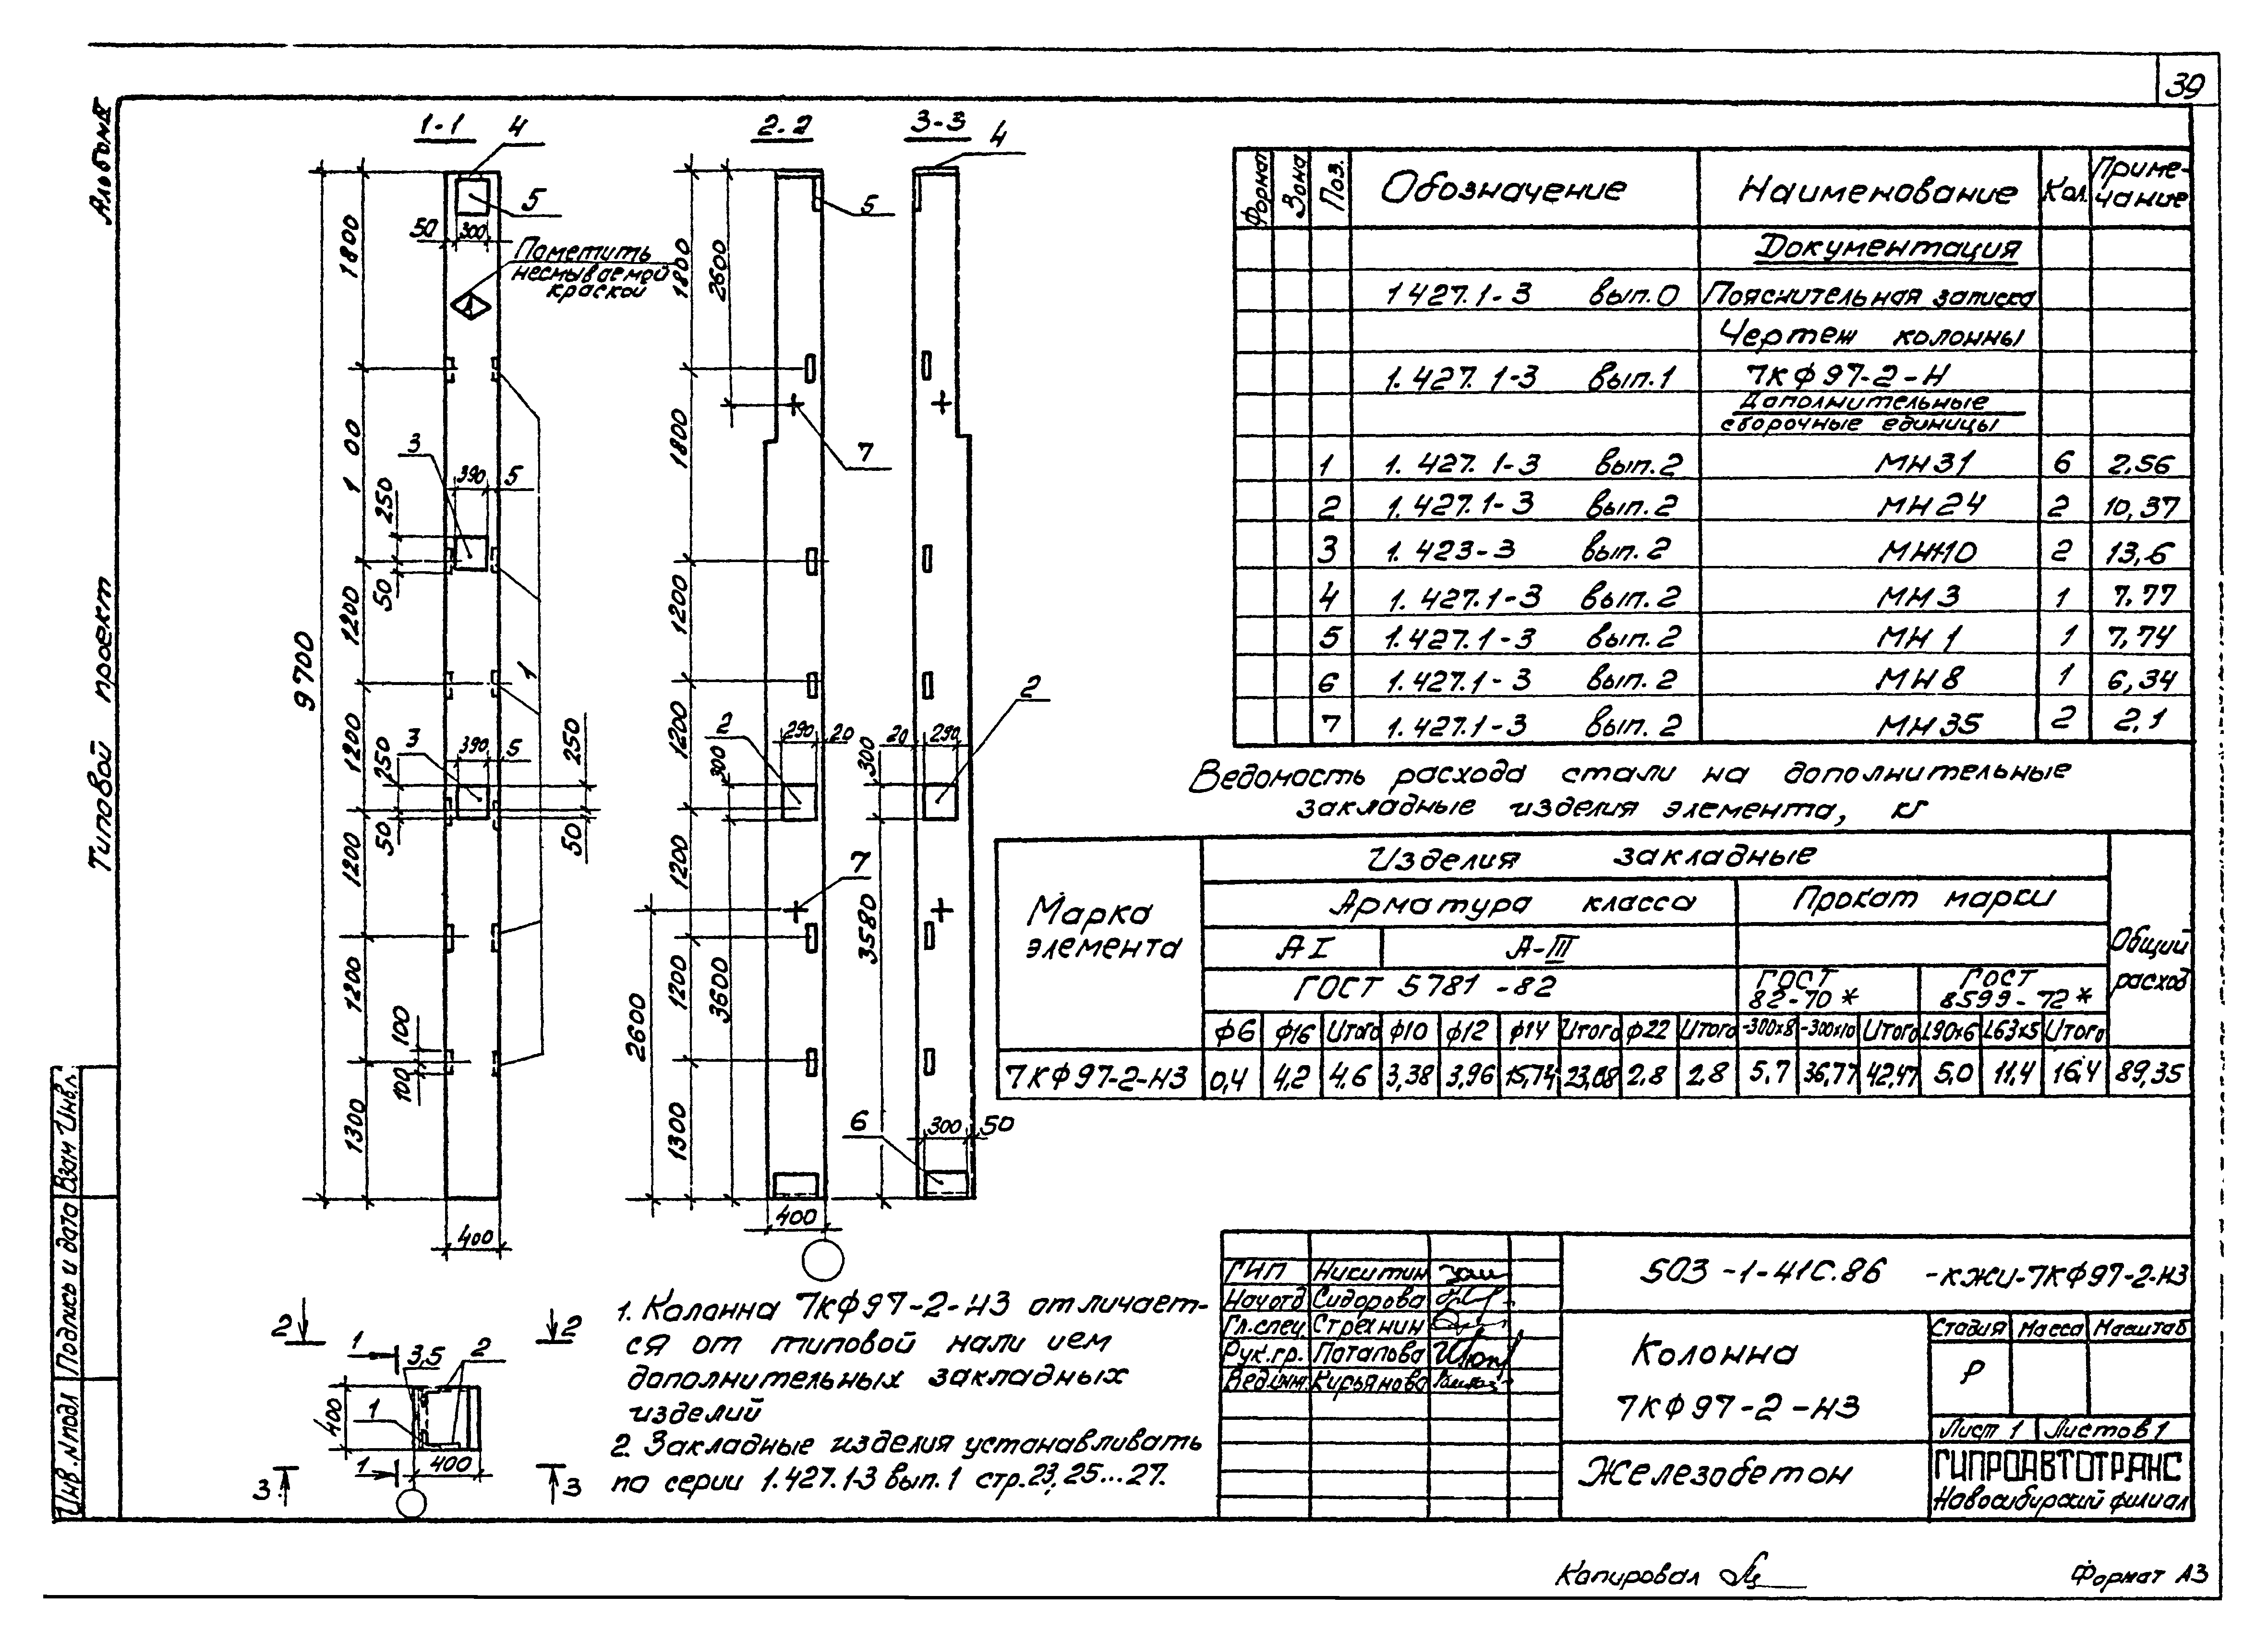 39
Альбом II
Типовой проект
Инв. № подл
Подпись и дата
Взам Инв.
1-1
4
5
50 300
Пометить
несмываемой
краской
1800
1 00
1200
1200
1200
1200
1300
9700
3
390 5
250
50
1
3
390 5
250
50
250
50
100
100
400
2-2
5
1800
2600
1800
7
1200
1200
1200
1200
1300
2
290 20
300
3600
7
2600
400
3-3
4
2
20 290
300
3580
6
300 50
2 2
1
3,5 2
1
400
400
1
3 3
1. Колонна 7КФ97-2-Н3 отличает-
ся от типовой нали ием
дополнительных закладных
изделий
2. Закладные изделия устанавливать
по серии 1.427.1-3 вып. 1 стр. 23, 25...27.
Формат Зона Поз. Обозначение Наименование Кол. Приме-
чание
Документация
1427.1-3 вып.0 Пояснительная записка
Чертеж колонны
1.427.1-3 вып.1 7КФ97-2-Н
Дополнительные
сборочные единицы
1 1.427.1-3 вып.2 МН31 6 2,56
2 1.427.1-3 вып.2 МН24 2 10,37
3 1.423-3 вып.2 МН10 2 13,6
4 1.427.1-3 вып.2 МН3 1 7,77
5 1.427.1-3 вып.2 МН1 1 7,74
6 1.427.1-3 вып.2 МН8 1 6,34
7 1.427.1-3 вып.2 МН35 2 2,1
Ведомость расхода стали на дополнительные
закладные изделия элемента, кг
Марка
элемента
Изделия закладные
Арматура класса Прокат марки
Общий
расход
А I А-III
ГОСТ 5781-82
ГОСТ
82-70*
ГОСТ
8599-72*
ф6 ф16 Итого ф10 ф12 ф14 Итого ф22 Итого -300х8 -300х10 Итого L90х6 L63х5 Итого
7КФ97-2-Н3 0,4 4,2 4,6 3,38 3,96 15,74 23,08 2,8 2,8 5,7 36,77 42,47 5,0 11,4 16,4 89,35
ГИП Никитин
Нач отд Сидорова
Гл.спец. Стрехнин
Рук.гр. Потапова
Вед.инж. Кирьянова
503-1-41С.86 -КЖИ-7КФ97-2-Н3
Колонна
7КФ97-2-Н3
Стадия Масса Масштаб
Р
Лист 1 Листов 1
Железобетон
ГИПРОАВТОТРАНС
Новосибирский филиал
Копировал
Формат А3